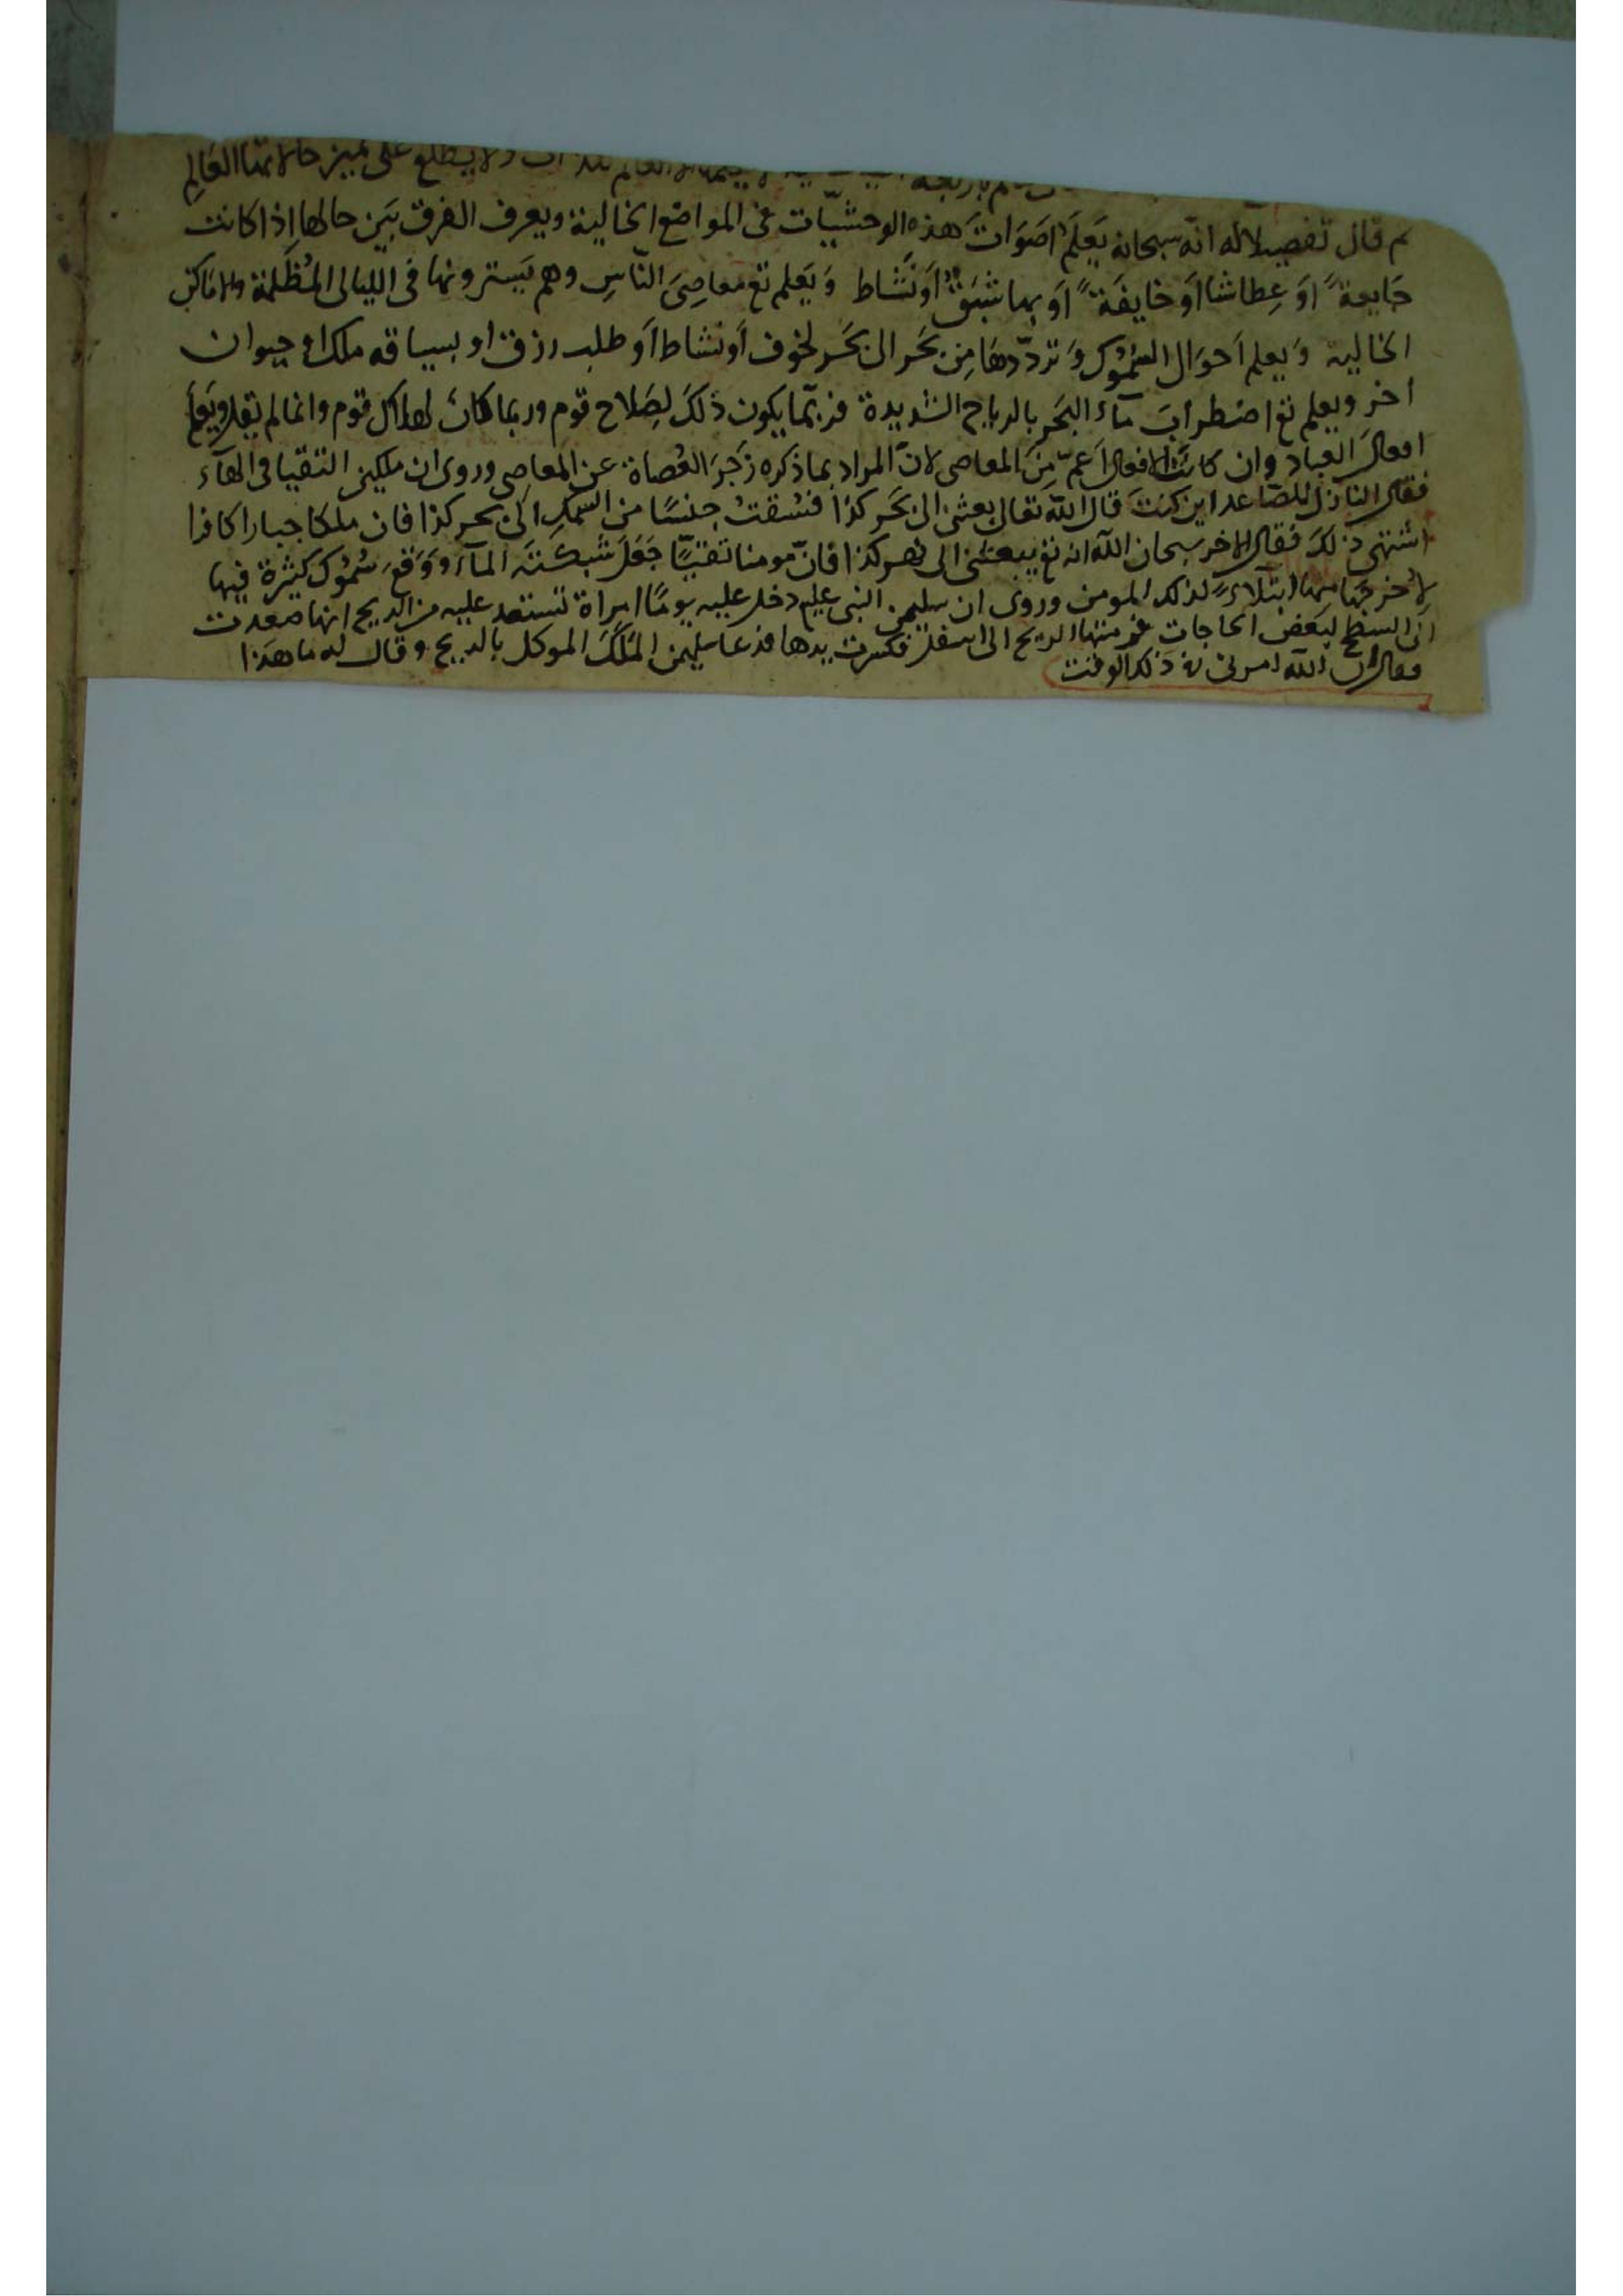 ولا يطلع على تميز حالاتها العالم
ثم قال تفصيلا له انه سبحانه يَعلَم اصَوَاتَ هذه الوحشيّات فى المواضع الخالية ويعرف الفرق بَين حالها اِذا كانت
جَايعةً اوَ عِطاشا اوَ خايفَةً اوَ بها شبَقٌ اَو نَشَاط وَ يَعلم تع معاصِىَ النّاسِ وهم يَستترونها فى الليالى المُظلمة والاماكن
الخالية وَيعلم اَحوَال السُمُوك وَ تردّدهَا مِن بَحَر الى بَحَر لخوف اَو نشاط اَو طلب رزق او بسياقه ملك او حيوان
اخر ويعلم تع اضطرابَ مآء البَحر بالرياح الشديدة فربّما يكون ذلكَ لِصَلاح قوم وربما كانَ لهلاك قوم وانما لم يقل ويَعلم
افعالَ العباد وان كانَت الافعال اَعمّ مِنَ المعاصى لانّ المراد بما ذكره زَجَرَ العُصاة عن المعاصى وروى ان ملكين التقيا فى الهوآء
فقال النازل للصّاعد اين كنتَ قال اللّه تعالى بعثنى الى بَحَر كذا فسُقتُ جنسًا من السمكِ الى بحر كذا فان ملكا جبارا كافرا
اشتهى ذلكَ فقال الاخر سبحان اللّه انه تع يبعثنى الى نهر كذا فانّ مومنا تقيّا جَعَلَ شبكتَه المآء ووَقعَ سُمُوك كثيرة فيها
لاخرجَها منها ابتلآءً لذلك المومن وروى ان سليمن النبى عليم دخل عليه يومًا امراة تستعد عليه من الريح انها صعدت
الى السطح لبَعضِ الحاجات الريح الى اسفل فكسرت يدها فدعا سليمن المَلَكَ الموكل بالريح وقال له ما هَذا
فقال ان اللّه امرنى فى ذلك الوقت